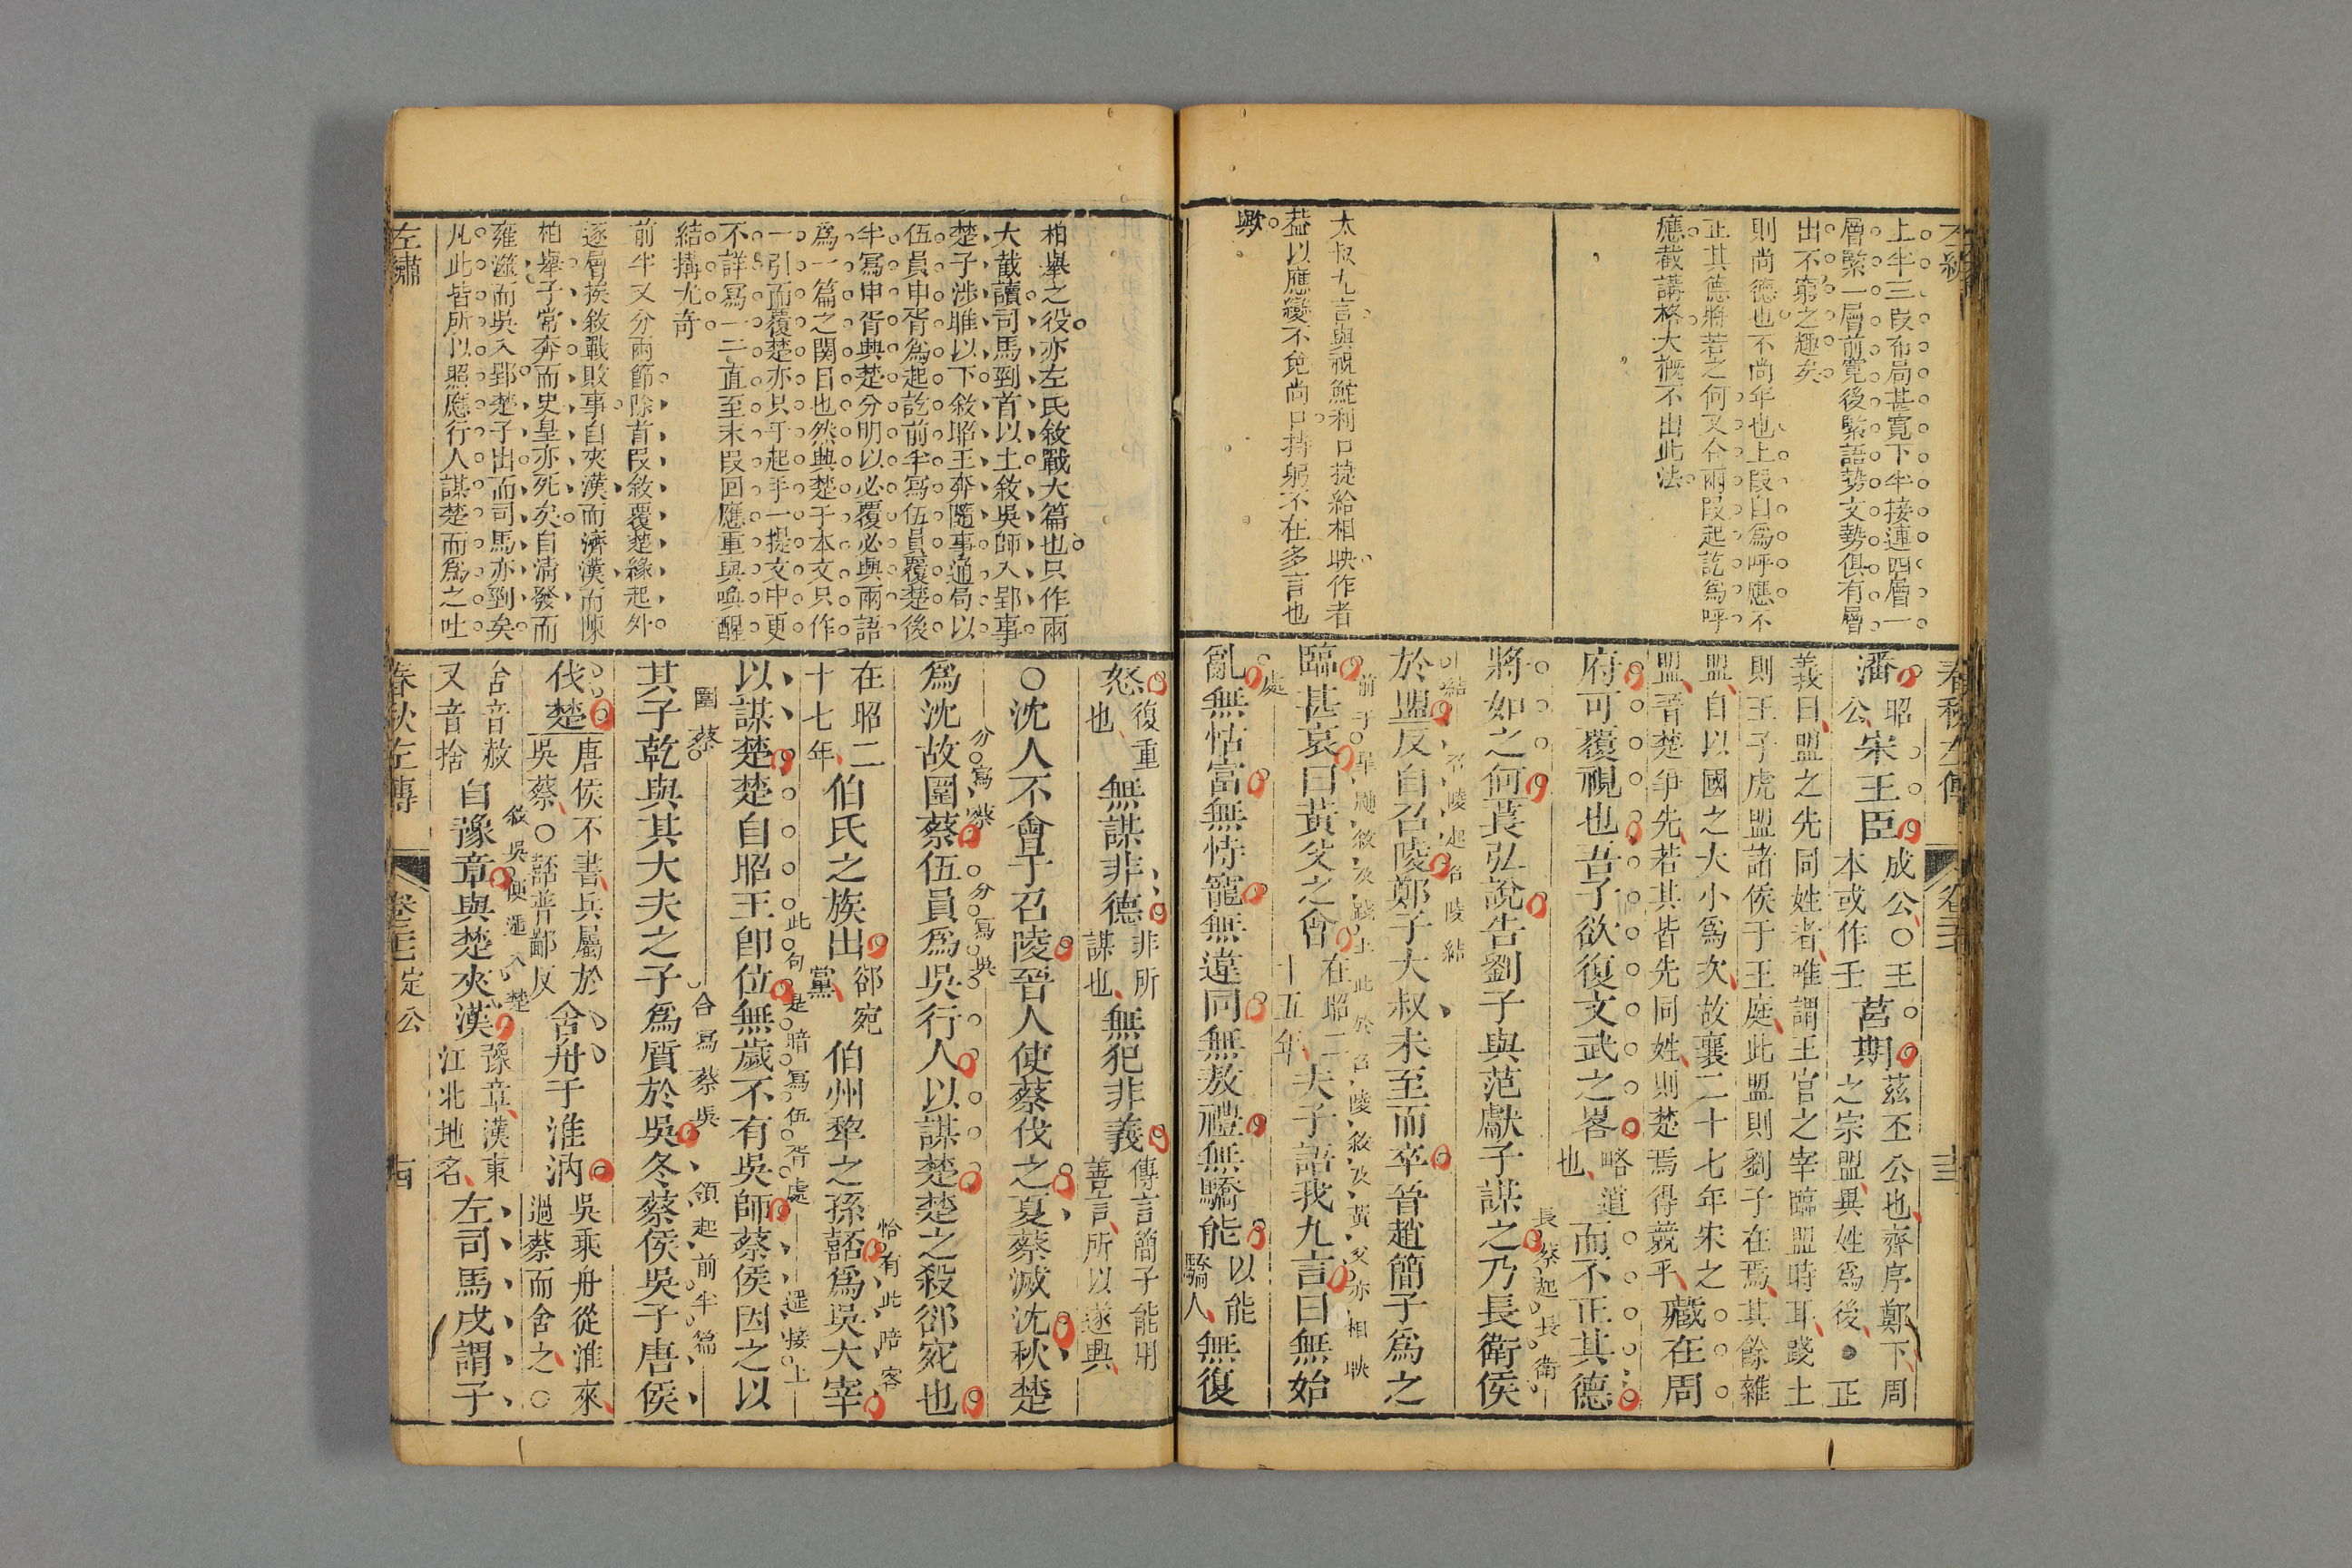 上半三段布局甚寬下半接連四層一
層緊一層前寬後緊語勢文勢俱有層
出不窮之趣矣
則尚德也不尚年也上段自爲呼應不
正其德將若之何又合兩段起訖爲呼
應截講格大槪不出此法
太叔九言與祝鮀利口捷給相映作者
葢以應變不免尚口持躬不在多言也
歟
春秋左傳
潘昭公宋王臣成公○王本或作壬莒期茲丕公也齊序鄭下周之宗盟異姓爲後●正
義曰盟之先同姓者唯謂王官之宰臨盟時耳踐土
則王子虎盟諸侯于王庭此盟則劉子在焉其餘雜
盟自以國之大小爲次故襄二十七年宋之
盟晉楚爭先若其皆先同姓則楚焉得競乎藏在周
府可覆視也吾子欲復文武之畧略道也而不正其德
長蔡起長衛
將如之何萇弘說告劉子與范獻子謀之乃長衛侯
結召陵起召陵結
於盟反自召陵鄭子大叔未至而卒晉趙簡子爲之
臨甚哀曰黃父之會在昭二十五年夫子語我九言曰無始
處
亂無怙富無恃寵無違同無敖禮無驕能以能驕人無復
左繡
柏舉之役亦左氏敘戰大篇也只作兩
大截讀司馬到首以上敘吳師入郢事
楚子涉雎以下敘昭王奔隨事通局以
伍員申胥爲起訖前半寫伍員覆楚後
半寫申胥興楚分明以必覆必興兩語
爲一篇之關目也然興楚子本文只作
一引而覆楚亦只于起手一提文中更
不詳寫一二直至末段回應重與喚醒
結搆尤奇
前半又分兩節除首段敘覆楚緣起外
逐層挨敘戰敗事自夾漢而濟漢而陳
柏舉子常奔而史皇亦死矣自清發而
雍澨而吳入郢楚子出而司馬亦到矣
凡此皆所以照應行人謀楚而爲之吐
怒復重也無謀非德非所謀也無犯非義傳言簡子能用善言所以遂興
○沈人不會于召陵晉人使蔡伐之夏蔡滅沈秋楚
分寫蔡 分寫吳
爲沈故圍蔡伍員爲吳行人以謀楚楚之殺郤宛也
在昭二十七年伯氏之族出郤宛黨伯州犂之孫嚭爲吳大宰
恰有此陪客
以謀楚楚自昭王卽位無歲不有吳師蔡侯因之以
此句是暗寫伍胥處 逕接上
圍蔡 合寫蔡吳 領起前半篇
其子乾與其大夫之子爲質於吳冬蔡侯吳子唐侯
伐楚唐侯不書兵屬於吳蔡○嚭普鄙反舍舟于淮汭吳乘舟從淮來過蔡而舍之○
敘吳便遞入楚
舍音赦又音捨自豫章與楚夾漢豫章漢東江北地名左司馬戌謂子
春秋左傳 卷二十七 定公